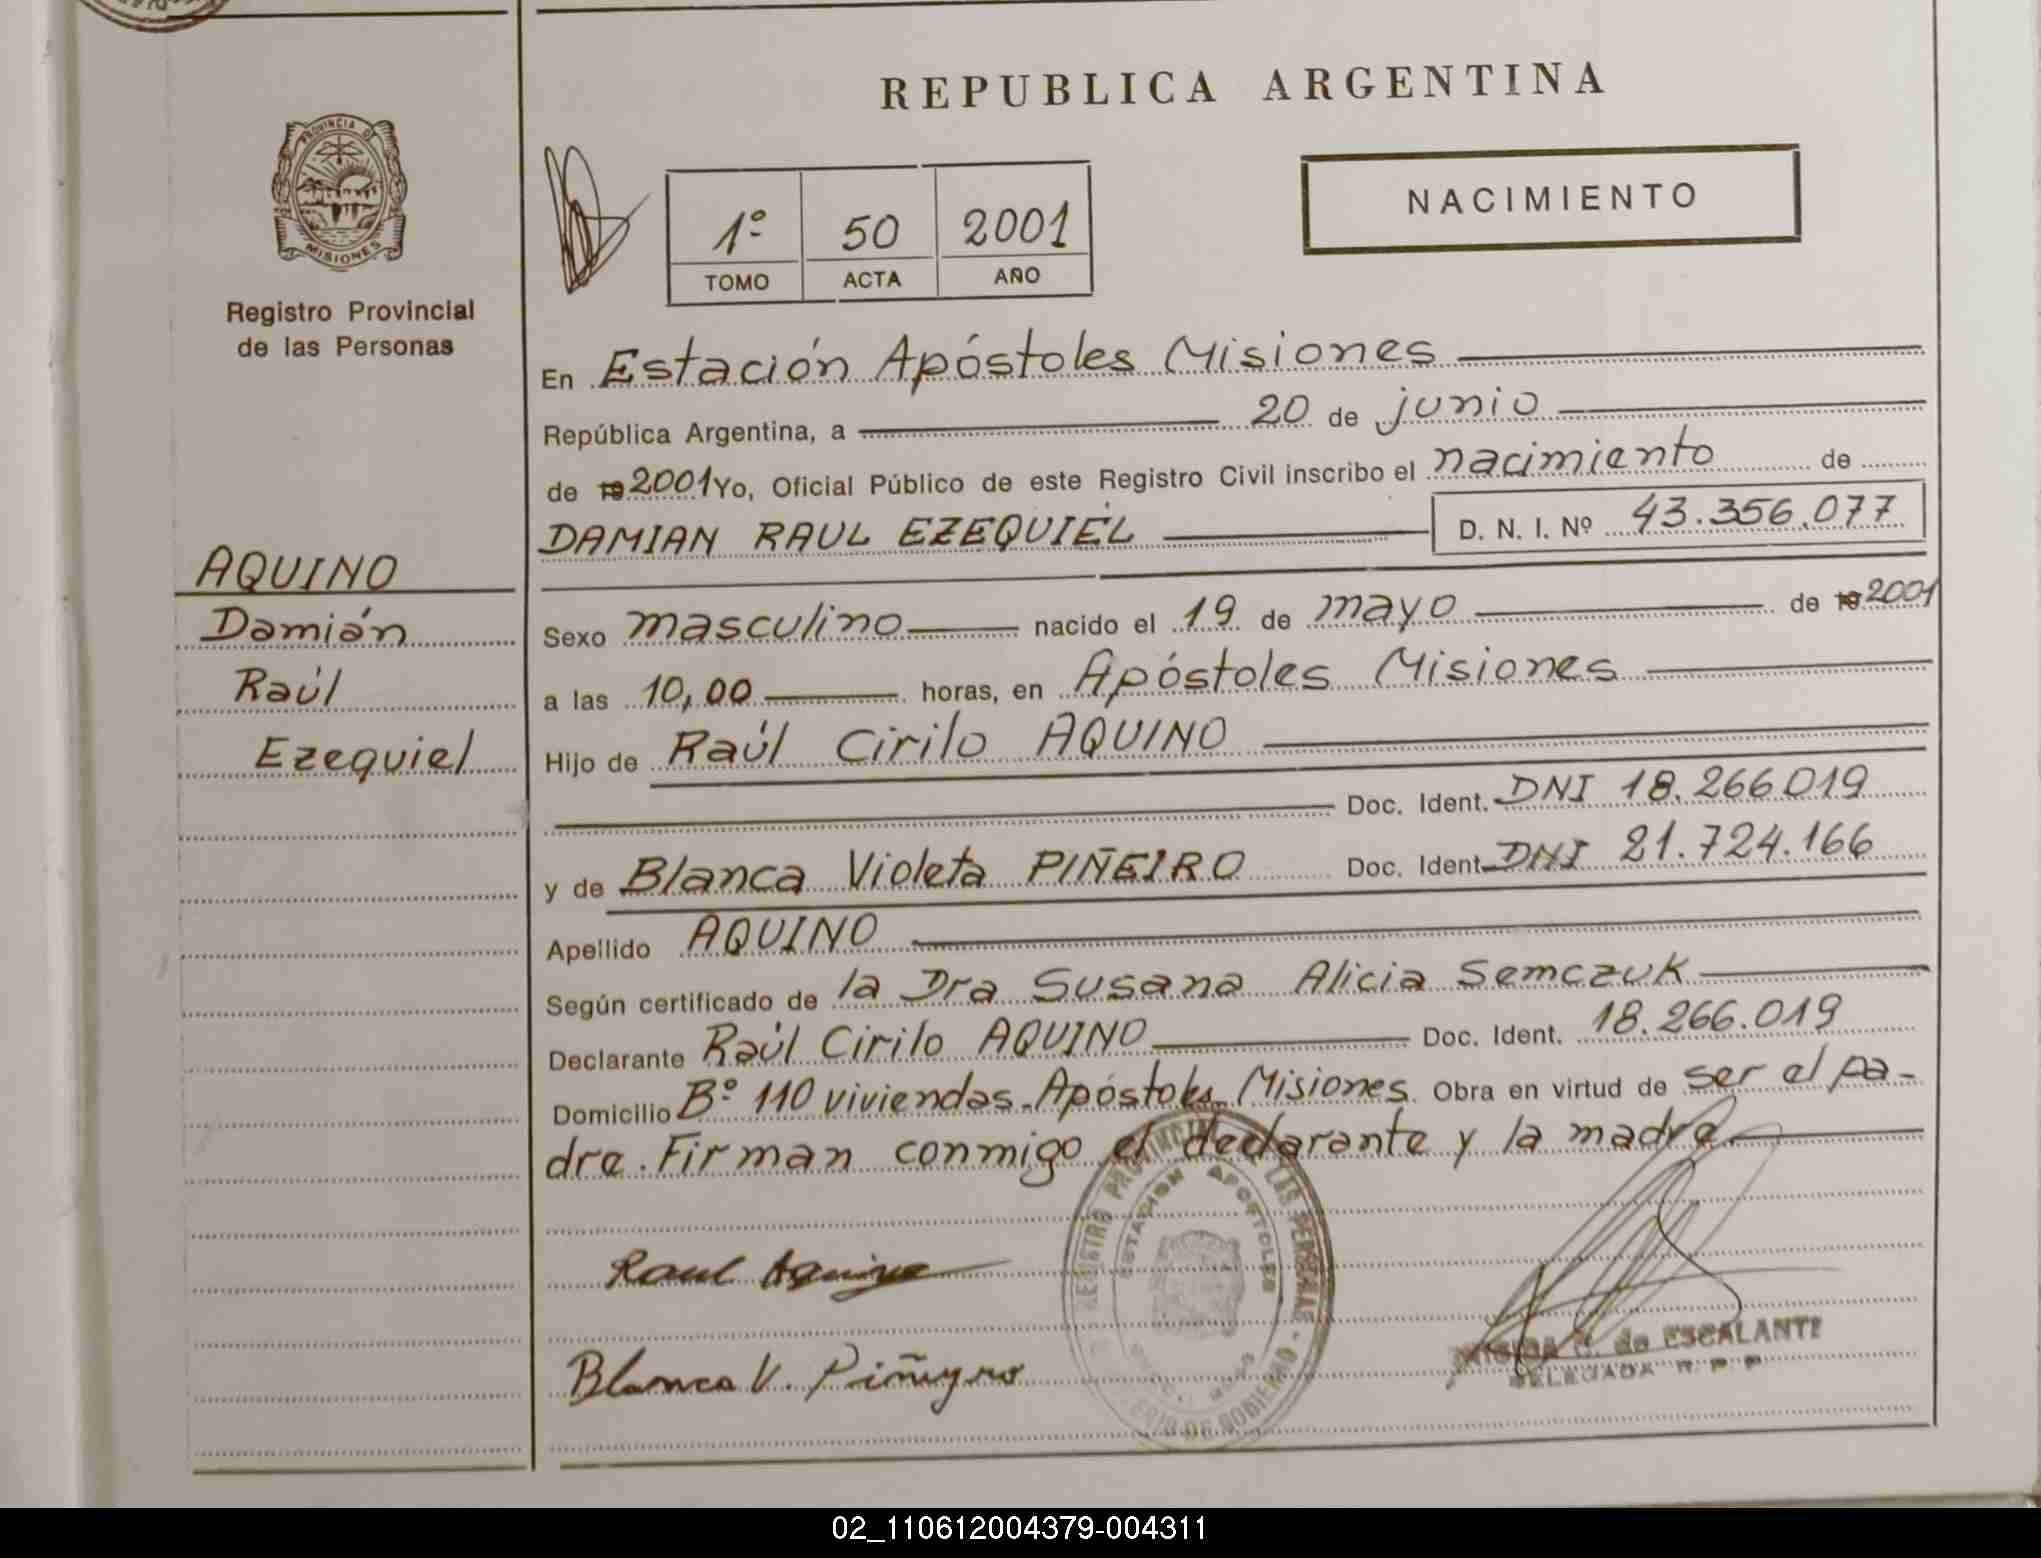 REPUBLICA ARGENTINA
PROVINCIA D
MISIONES
Registro Provincial
de las Personas
1º 50 2001
TOMO ACTA AÑO
NACIMIENTO
En Estación Apóstoles Misiones
República Argentina, a 20 de junio
de 19 2001 Yo, Oficial Público de este Registro Civil inscribo el nacimiento de
DAMIAN RAUL EZEQUIEL D. N. I. Nº 43.356.077
AQUINO
Damián
Raúl
Ezequiel
Sexo masculino nacido el 19 de mayo de 19 2001
a las 10,00 horas, en Apóstoles Misiones
Hijo de Raúl Cirilo AQUINO
Doc. Ident. DNI 18.266019
y de Blanca Violeta PIÑEIRO Doc. Ident. DNI 21.724.166
Apellido AQUINO
Según certificado de la Dra Susana Alicia Semczuk
Declarante Raúl Cirilo AQUINO Doc. Ident. 18.266.019
Domicilio Bº 110 viviendas. Apóstoles Misiones Obra en virtud de ser el pa-
dre. Firman conmigo el declarante y la madre.
REGISTRO PROVINCIAL LAS PERSONAS
ESTACION APOSTOLES
DE GOBIERNO
Raul Aquino
Blanca V. Piñeyro
de ESCALANTE
DELEGADA R P P
02_110612004379-004311